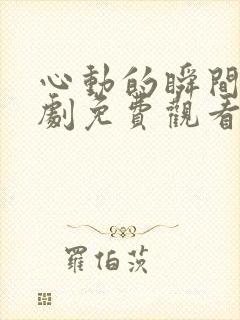 心動的瞬間
劇免費觀看
羅伯茨